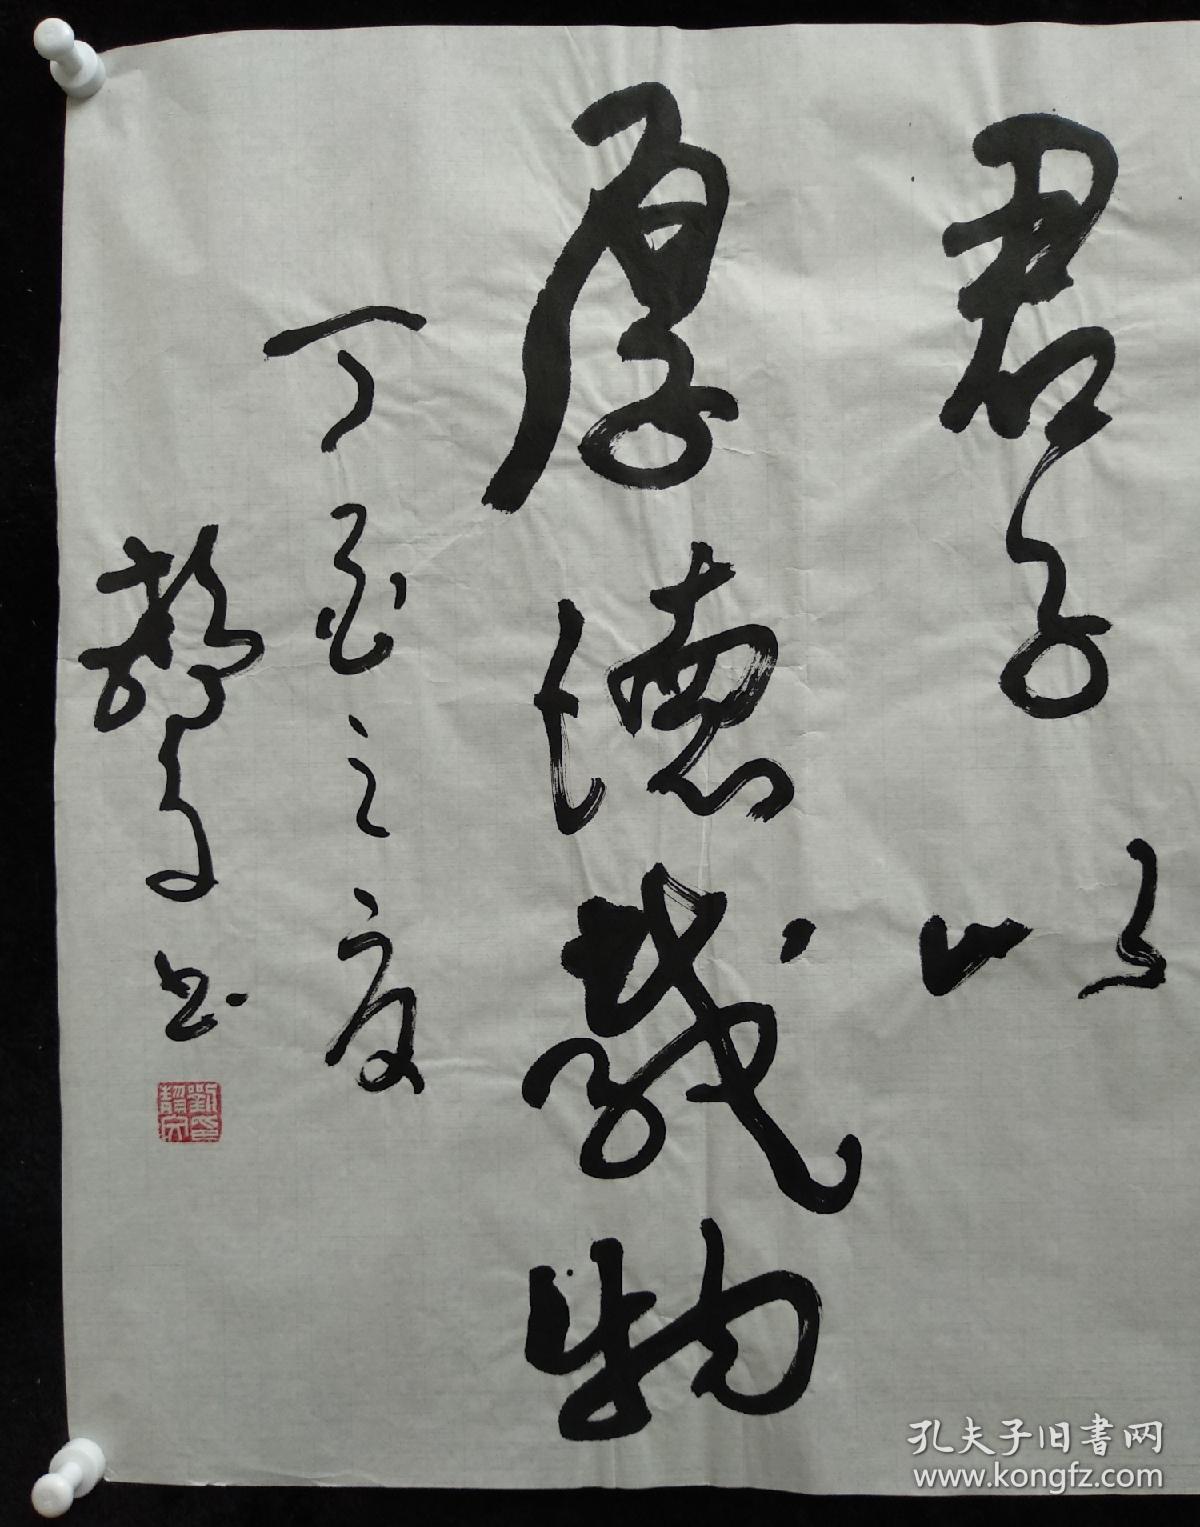 君子以
厚德載物
丁酉之夏
书
孔夫子旧書网
www.kongfz.com